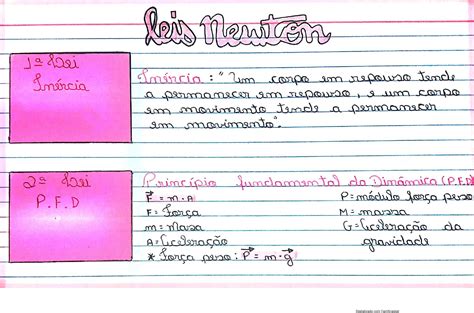 leis Newton
1ª Lei
Inércia
Inércia : "Um corpo em repouso tende
a permanecer em repouso, e um corpo
em movimento tende a permanecer
em movimento".
2ª Lei
P.F.D
Princípio fundamental da Dinâmica (P.F.D)
F = m·A
P = módulo força peso
F = Força
M = massa
m = Massa
G = Aceleração da
gravidade
A = Aceleração
* Força peso : P = m·g